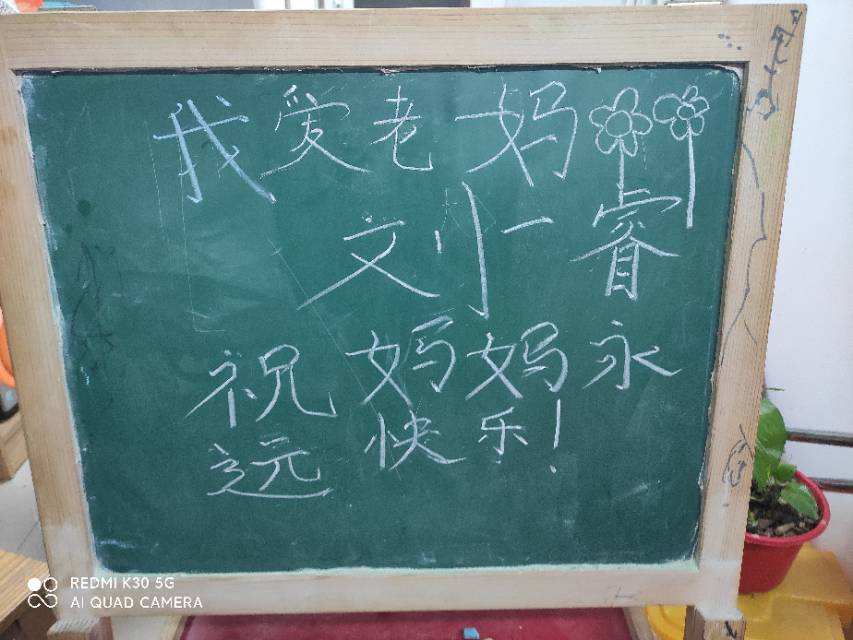 我爱老妈
刘一睿
祝妈妈永
远快乐！
REDMI K30 5G
AI QUAD CAMERA